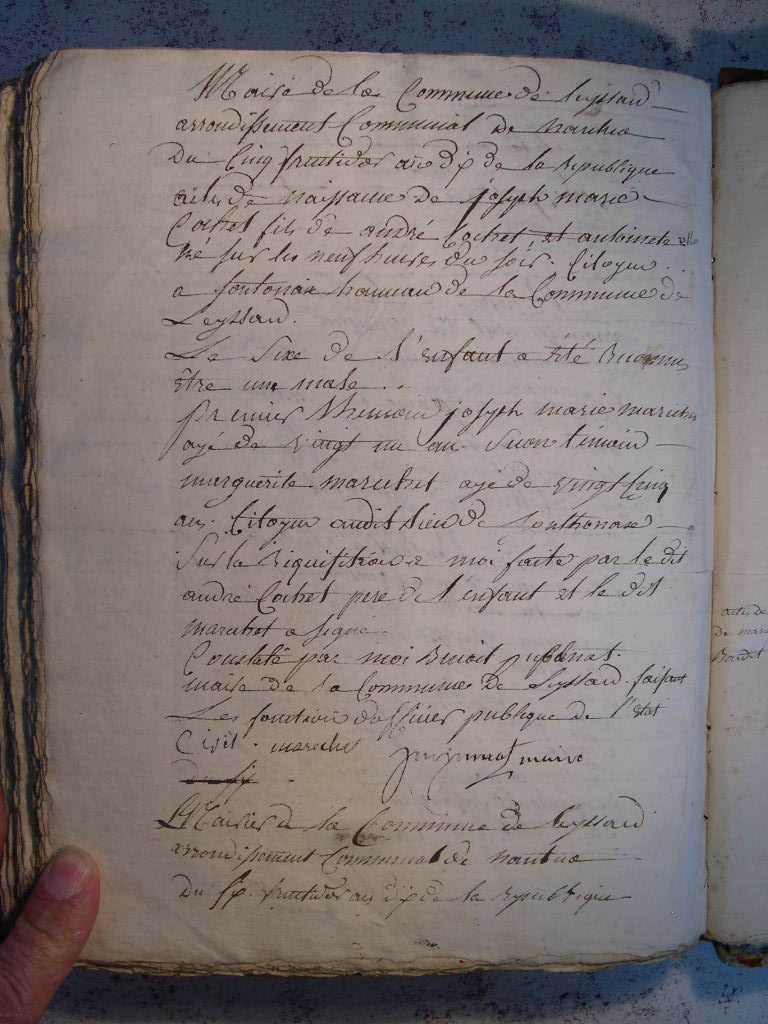 Mairie de la Commune de Leyssard
arrondissement Communal de nantua
Du Cinq fructidor an dix de la republique
acte de naissance de joseph marie
Cochet fils de andré Cochet et antoinette
né sur les neuf heures du soir. Citoyen
a sontonax hameau de la Commune de
Leyssard.
Le Sexe de l'enfant a été reconnu
être une male..
premier themoin joseph marie marechet
agé de vingt un an. Second témoin
marguerite marechet agé de vingt Cinq
an. Citoyen audit lieu de sonthonax
Sur la requisition a moi faite par le dit
andré Cochet pere de l'enfant et le dit
marechet a signé
Constaté par moi Benoit
maire de la Commune de Leyssard. faisant
Les fonction d'officier publique de l'état
Civil. marechet maire
Mairie de la Commune de leyssard
arrondissement Communal de nantua
Du six fructidor an dix de la republique
acte de
de mari